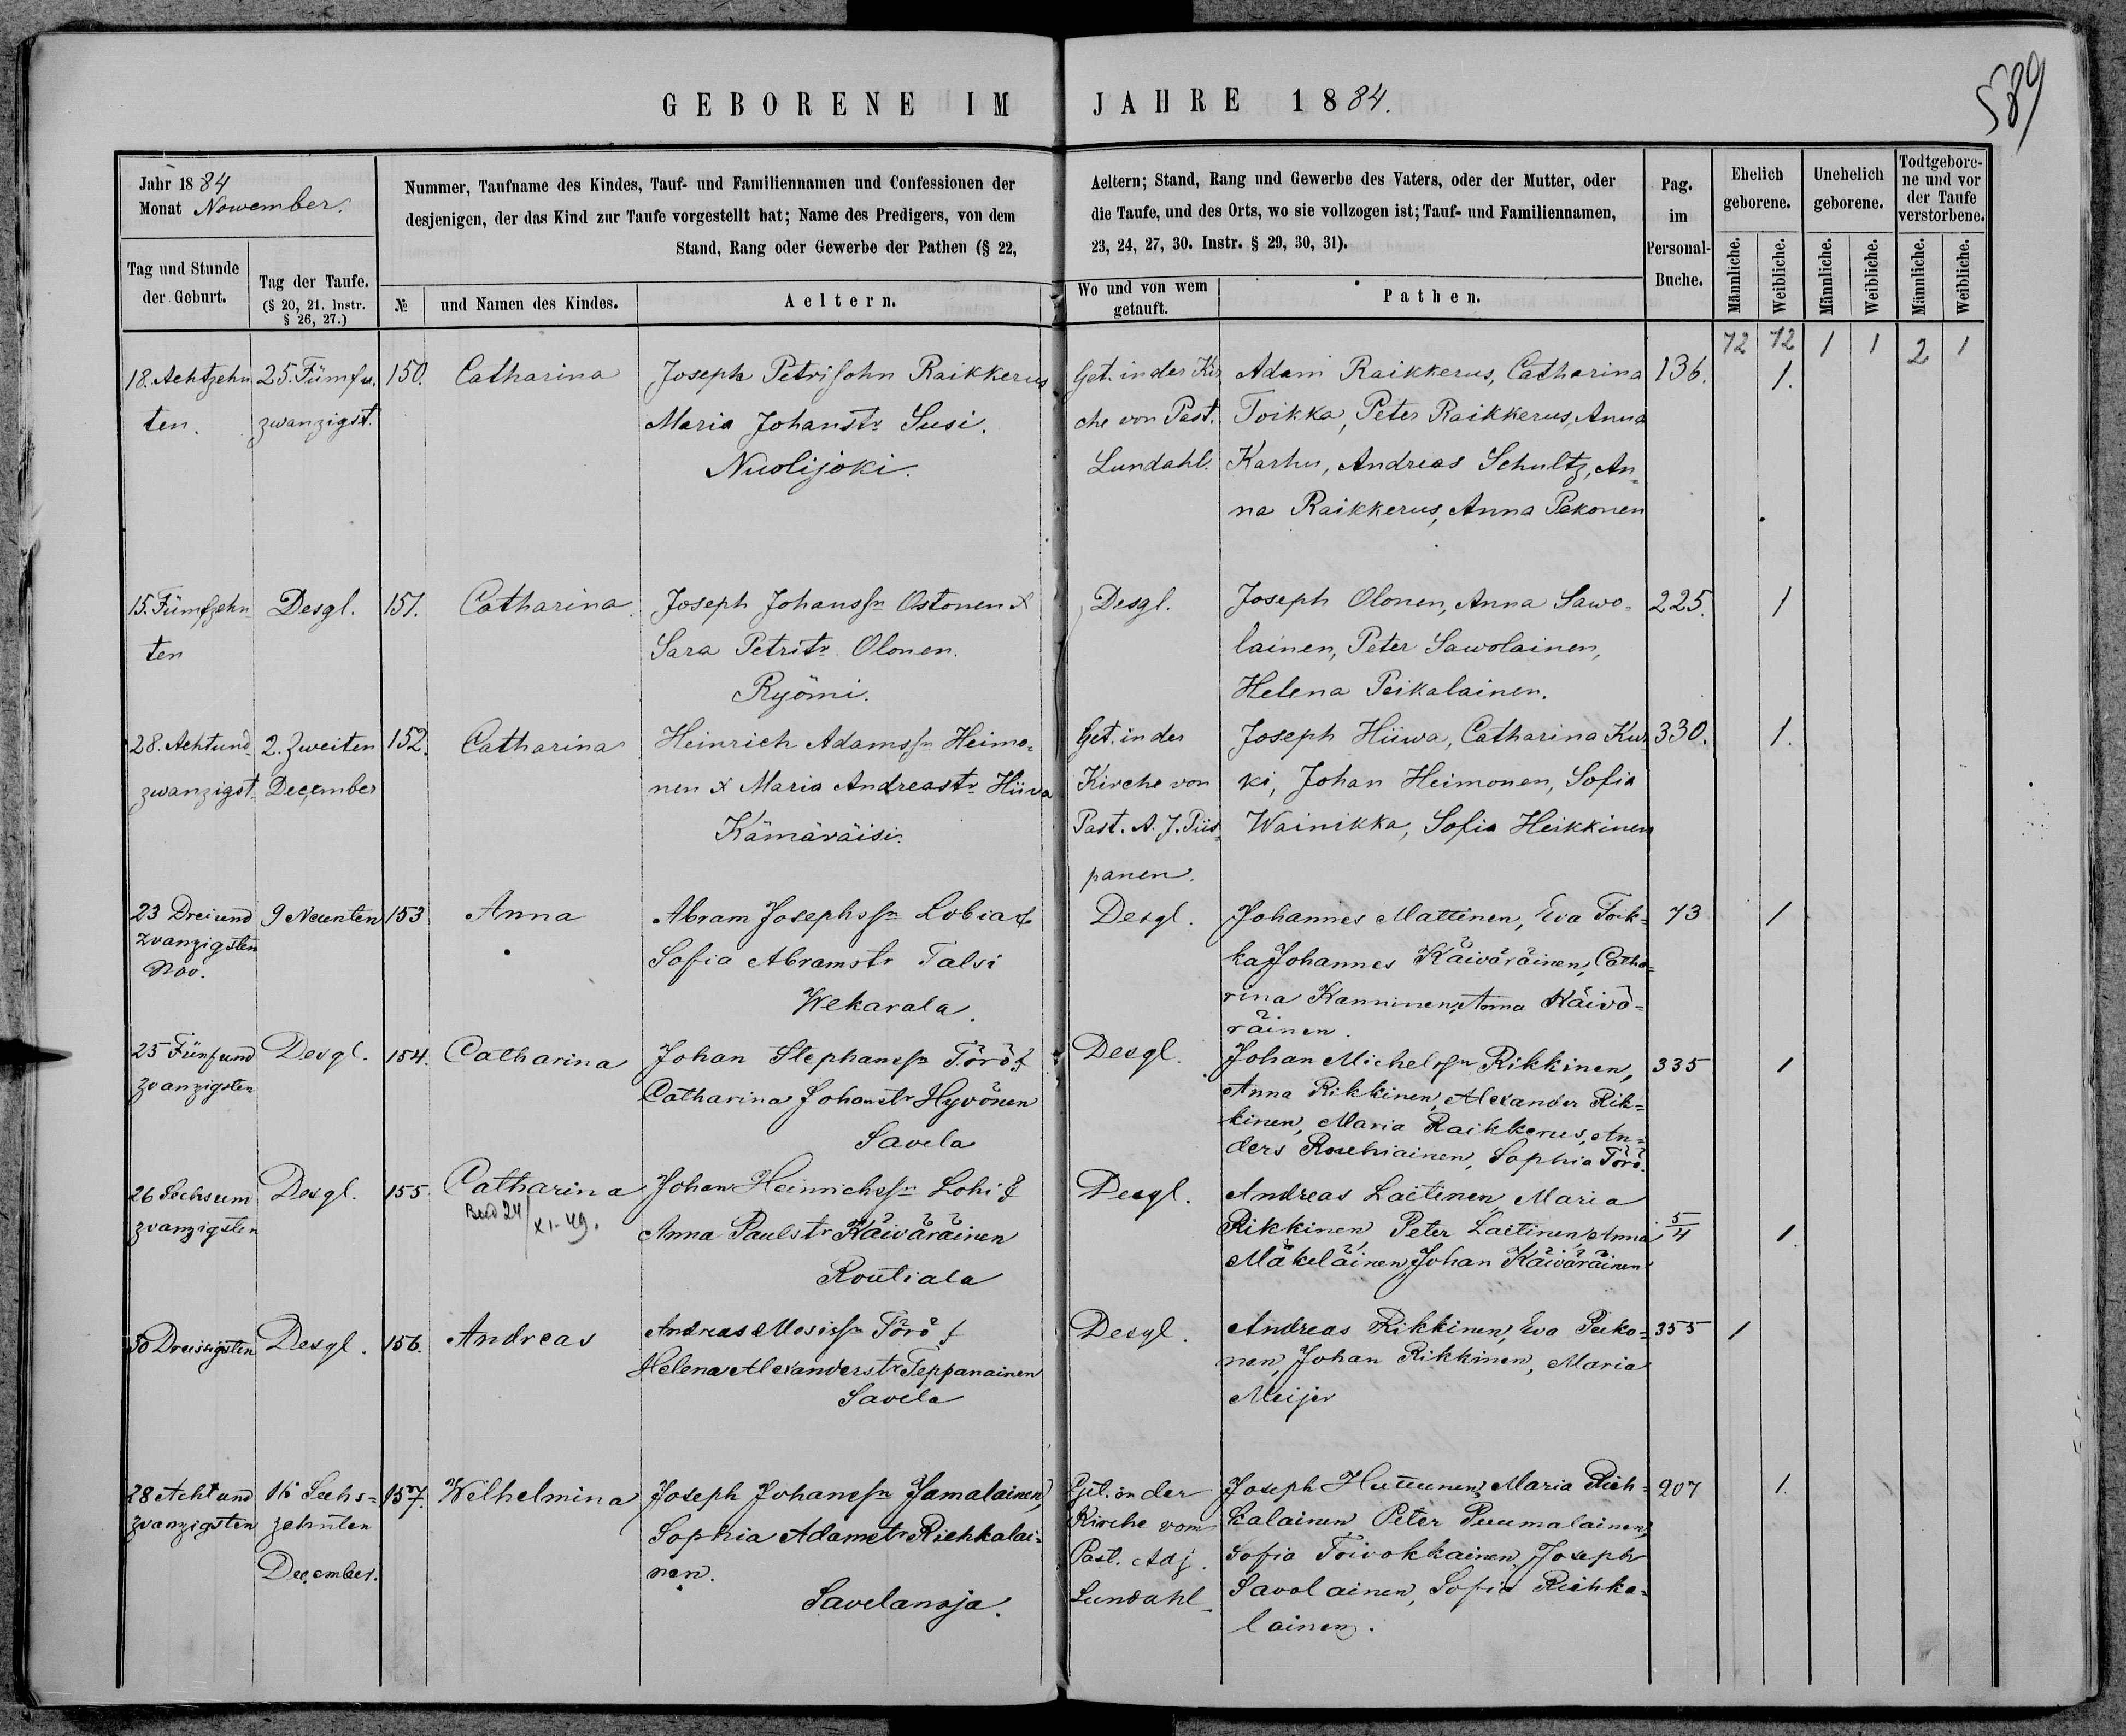 GEBORENE IM JAHRE 1884.
589
Jahr 1884
Monat Nowember.
Nummer, Taufname des Kindes, Tauf- und Familiennamen und Confessionen der
desjenigen, der das Kind zur Taufe vorgestellt hat; Name des Predigers, von dem
Stand, Rang oder Gewerbe der Pathen (§ 22,
Aeltern; Stand, Rang und Gewerbe des Vaters, oder der Mutter, oder
die Taufe, und des Orts, wo sie vollzogen ist; Tauf- und Familiennamen,
23, 24, 27, 30. Instr. § 29, 30, 31).
Pag.
im
Personal-
Buche.
Ehelich
geborene.
Unehelich
geborene.
Todtgebore-
ne und vor
der Taufe
verstorbene.
Tag und Stunde
der Geburt.
Tag der Taufe.
(§ 20, 21. Instr.
§ 26, 27.)
№
und Namen des Kindes.
Aeltern.
Wo und von wem
getauft.
Pathen.
Männliche.
Weibliche.
Männliche.
Weibliche.
Männliche.
Weibliche.
72 72 1 1 2 1
18. Achtzehn 25. Fümf u. 150. Catharina Joseph Petrisohn Raikkerus Get. in der Kir Adam Raikkerus, Catharina 136. 1.
ten. zwanzigst. Maria Johanstr Susi. che von Past. Toikka, Peter Raikkerus, Anna
Nuolijoki. Lundahl. Karhu, Andreas Schultz, An-
na Raikkerus, Anna Pekonen
15. Fümfzehn Desgl. 151. Catharina. Joseph Johanssn Ostonen & Desgl. Joseph Olonen, Anna Sawo- 225. 1
ten Sara Petritr Olonen. lainen, Peter Sawolainen,
Ryömi. Helena Peikalainen.
28. Achtund 2. Zweiten 152. Catharina Heinrich Adamssn Heimo- Get. in der Joseph Hiiwa, Catharina Kur 330. 1.
zwanzigst. December nen & Maria Andreastr Hiiva Kirche von ki, Johan Heimonen, Sofia
Kämäräisi. Past. A. J. Piis- Wainikka, Sofia Heikkinen
panen.
23 Dreiund 9 Neunten 153 Anna Abram Josephssn Lobia & Desgl. Johannes Mattinen, Eva Toik- 73 1
zvanzigsten Sofia Abramstr Talsi ka Johannes Käiväräinen, Catha-
Nov. Wekarala. rina Kanninen, Anna Käivä-
räinen.
25 Fünfund Desgl. 154. Catharina Johan Stephanssn Törö & Desgl. Johan Michelssn Rikkinen, 335 1
zvanzigsten Catharina Johanstr Hyvönen Anna Rikkinen, Alexander Rik-
Savela kinen, Maria Raikkerus, An-
ders Rosehiainen, Sophia Törö.
26 Sechsum Desgl. 155 Catharina Johan Heinrichssn Lohi & Desgl. Andreas Laitinen, Maria
zvanzigsten 24/XI-49. Anna Paulstr Käiväräinen Rikkinen, Peter Laitinen, Anna 5/4 1.
Routiala Mäkeläinen, Johan Käiväräinen
30 Dreissigsten Desgl. 156. Andreas Andreas Mosissn Törö & Desgl. Andreas Rikkinen, Eva Peko- 355 1
Helena Alexanderstr Teppanainen nen, Johan Rikkinen, Maria
Savela Meijer
28 Acht und 16 Sechs- 157. Wilhelmina Joseph Johanssn Jamalainen, Get. in der Joseph Huttunen, Maria Rich- 207 1.
zvanzigsten zehnten Sophia Adamstr Richkalai- Kirche vom kalainen, Peter Puumalainen,
December. nen. Past. Adj. Sofia Toivokkainen, Joseph
Savelanoja. Lundahl Savolainen, Sofia Richka-
lainen.